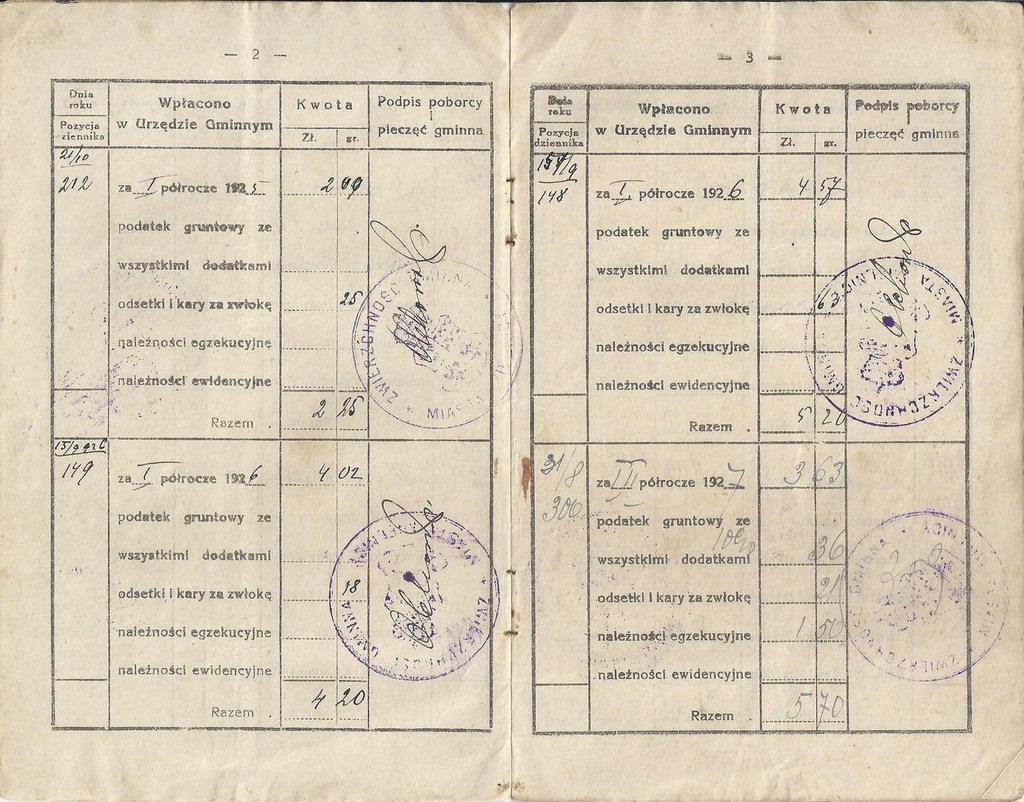 — 2 —
Dnia roku
Pozycja dziennika
Wpłacono w Urzędzie Gminnym
Kwota
Zł. gr.
Podpis poborcy i pieczęć gminna
21/10
212
za I półrocze 1925 2 09
podatek gruntowy ze
wszystkimi dodatkami
odsetki i kary za zwłokę 25
należności egzekucyjne
należności ewidencyjne
Razem . 2 25
ZWIERZCHNOŚĆ GMINNA * MIASTA
149
za I półrocze 1926 4 02
podatek gruntowy ze
wszystkimi dodatkami
odsetki i kary za zwłokę 18
należności egzekucyjne
należności ewidencyjne
Razem . 4 20
GMINNA
— 3 —
Dnia roku
Pozycja dziennika
Wpłacono w Urzędzie Gminnym
Kwota
Zł. gr.
Podpis poborcy i pieczęć gminna
148
za I półrocze 1926 4 57
podatek gruntowy ze
wszystkimi dodatkami
odsetki i kary za zwłokę 63
należności egzekucyjne
należności ewidencyjne
Razem . 5 20
ZWIERZCHNOŚĆ GMINNA MIASTA
31/8
306
za II półrocze 1927 3 63
podatek gruntowy ze
wszystkimi dodatkami 10% 36
odsetki i kary za zwłokę 21
należności egzekucyjne 1 50
należności ewidencyjne
Razem . 5 70
ZWIERZCHNOŚĆ GMINNA